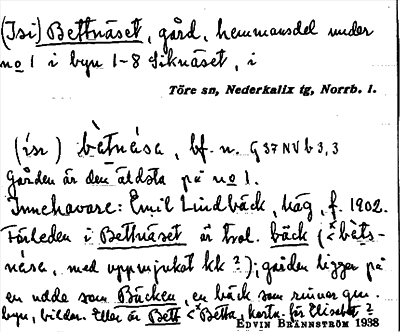 (Isi) Bettnäset, gård, hemmansdel under
no 1 i byn 1-8 Siknäset, i
Töre sn, Nederkalix tg, Norrb. l.
(ísı) bètnésa, bf. n. G 37 NV b 3,3
Gården är den äldsta på no 1.
Innehavare: Emil Lindbäck, häg, f. 1902.
Förleden i Bettnäset är trol. bäck (<*bèts-
nésa, med uppmjukat kk ?); gården ligger på
en udde som Bäcken, en bäck som rinner gm.
byn, bildar. Eller är Bett < *Betta, kortn. för Elisabet ?
EDVIN BRÄNNSTRÖM 1938